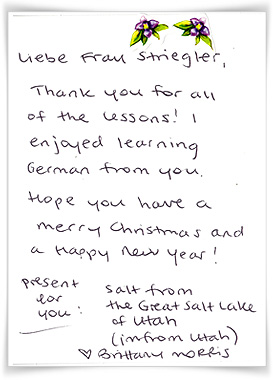 Liebe Frau Striegler,
Thank you for all
of the lessons! I
enjoyed learning
German from you.
Hope you have a
merry Christmas and
a Happy New year!
present
for
you:
salt from
the Great Salt Lake
of Utah
(im from Utah)
♡ Brittany Morris